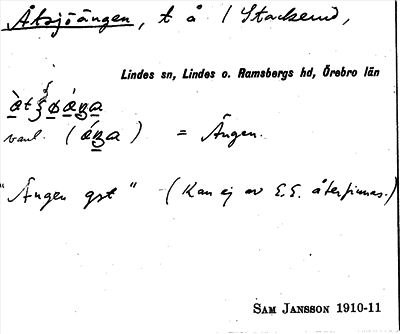 Åtsjöängen, t å / Stackerud,
Lindes sn, Lindes o. Ramsbergs hd, Örebro län
vanl. ( ) = Ängen.
"Ängen gst" (Kan ej av E.E. återfinnas.)
SAM JANSSON 1910-11